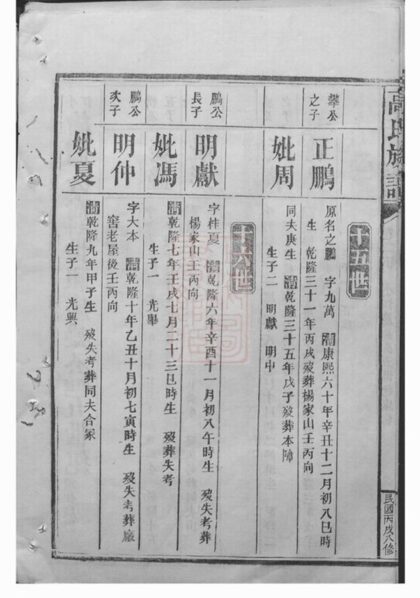 高氏族譜
民國丙戌八修
十五世
攀公
之子
正鵬
原名之鵬 字九萬 清康熙六十年辛丑十二月初八巳時
生 乾隆三十一年丙戌歿葬楊家山壬丙向
妣周
同夫庚生 清乾隆三十五年戊子歿葬本陣
生子二 明獻 明中
十六世
鵬公
長子
明獻
字桂夏 清乾隆六年辛酉十一月初八午時生 歿失考葬
楊家山壬丙向
妣馮
清乾隆七年壬戌七月二十三巳時生 歿葬失考
生子一 光舉
鵬公
次子
明仲
字大本 清乾隆十年乙丑十月初七寅時生 歿失考葬廠
窖老屋後壬丙向
妣夏
清乾隆九年甲子生 歿失考葬同夫合冢
生子一 光興